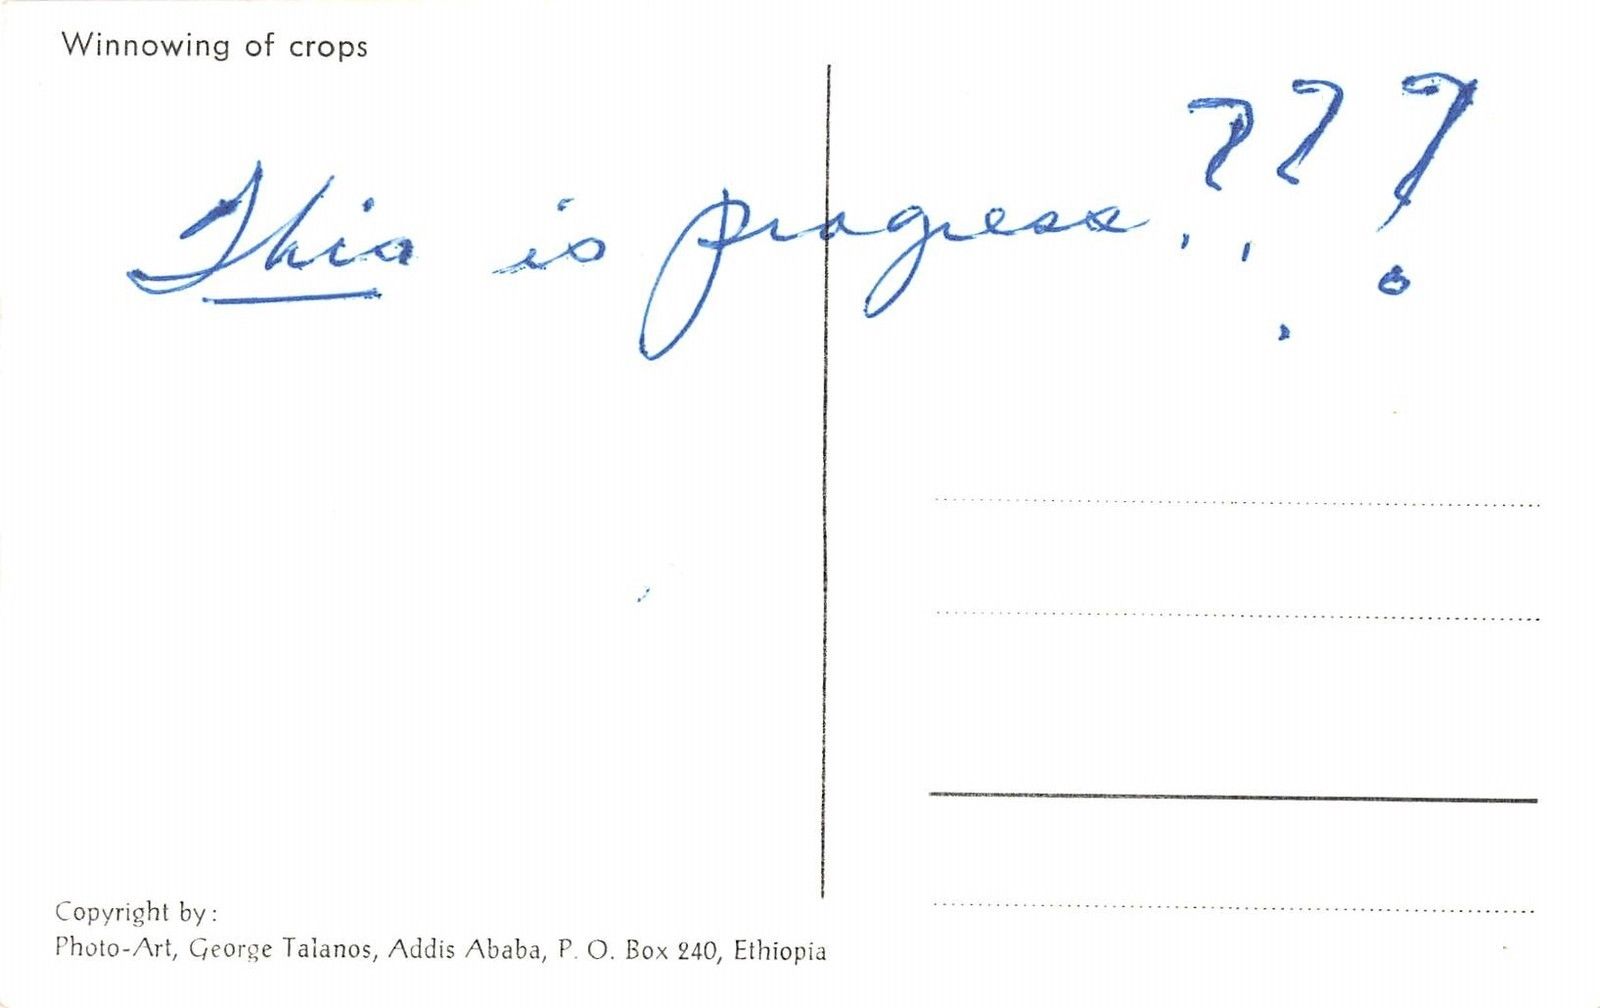 Winnowing of crops
This is progress???
Copyright by:
Photo-Art, George Talanos, Addis Ababa, P. O. Box 240, Ethiopia